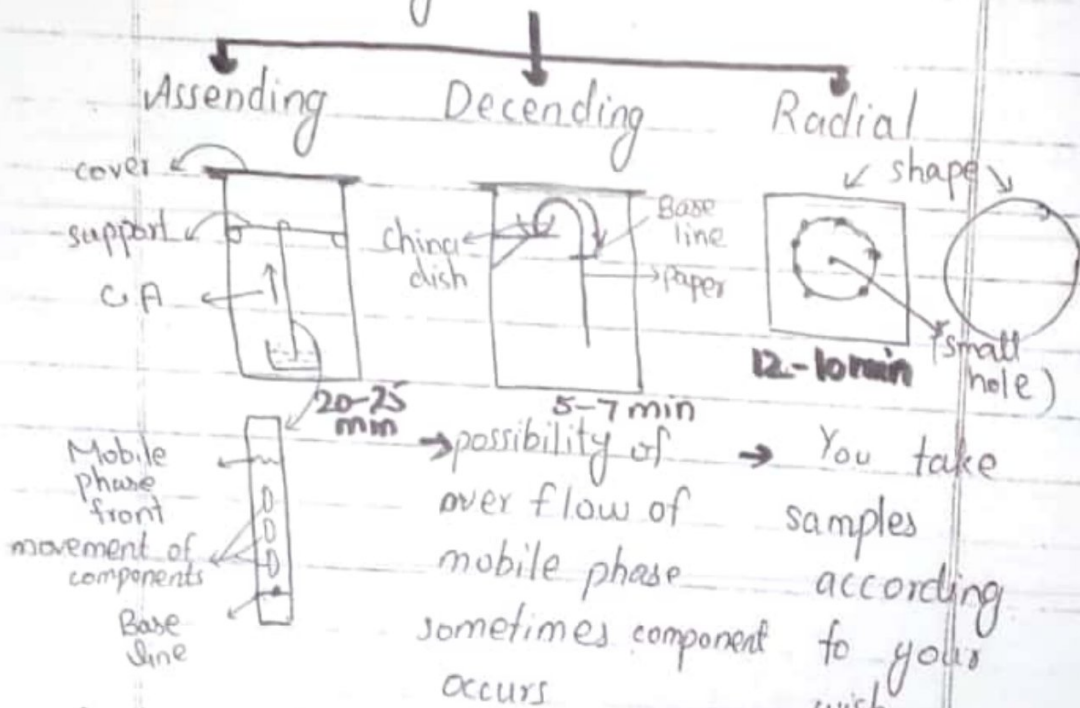 Assending Decending Radial
cover
support
C.A
china
dish
Base
line
paper
shape
(small
hole)
20-25
min
5-7 min
12-10min
Mobile
phase
front
movement of
components
Base
line
→possibility of
over flow of
mobile phase
sometimes component
occurs
→ You take
samples
according
to your